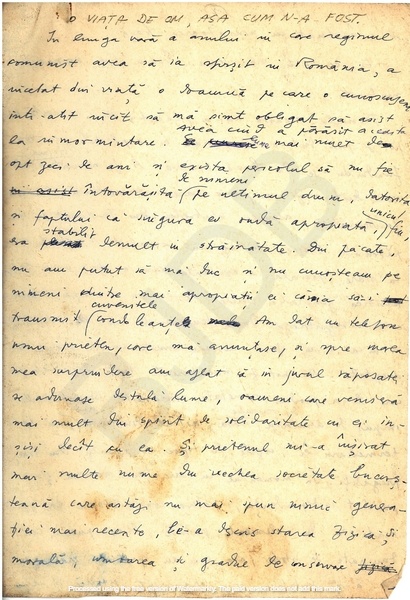 O VIAȚA DE OM, AȘA CUM N-A FOST.
În lunga vară a anului în care regimul
comunist avea să ia sfîrșit în România, a
încetat din viață o doamnă pe care o cunoscusem
într-atît încît să mă simt obligat să asist
la înmormîntare. avea cînd a părăsit această lume mai mult de
opt zeci de ani și exista pericolul să nu fie
întovărășită de nimeni pe ultimul drum, datorită
și faptului că singura ei rudă apropiată, unicul fiu,
era stabilit demult în străinătate. Din păcate,
nu am putut să mă duc și nu cunoșteam pe
nimeni dintre mai apropiații ei căruia să-i
transmit cuvenitele condoleanțe. Am dat un telefon
unui prieten, care mă anunțase, și spre marea
mea surprindere am aflat că în jurul răposatei
se adunase destulă lume, oameni care veniseră
mai mult din spirit de solidaritate cu ei în-
șiși decît cu ea. Și prietenul mi-a înșirat
mai multe nume din vechea societate bucureș-
teană care astăzi nu mai spun nimic genera-
ției mai recente, le-a descris starea fizică și
morală, și gradul de conservare
Processed using the free version of Watermarkly. The paid version does not add this mark.